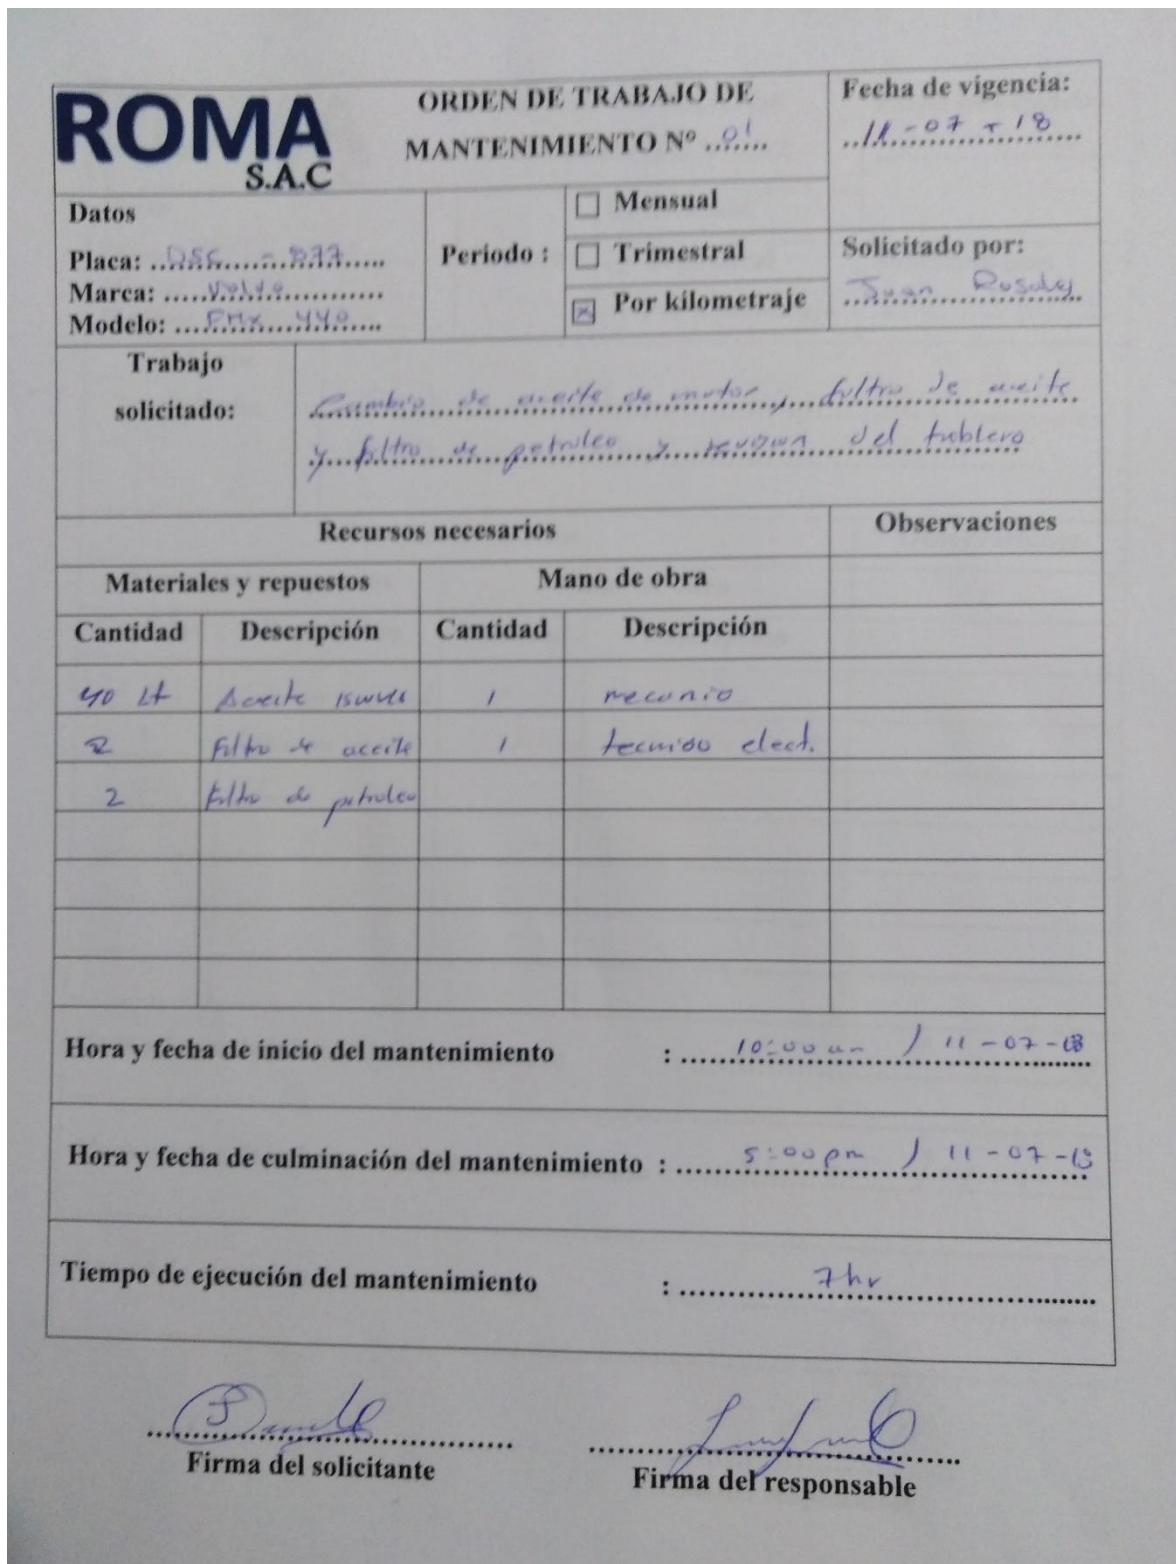 ROMA
S.A.C
ORDEN DE TRABAJO DE
MANTENIMIENTO Nº 01
Fecha de vigencia:
11-07-18
Datos
Placa: - 877
Marca: Volvo
Modelo: FMX 440
Periodo :
Mensual
Trimestral
Por kilometraje
Solicitado por:
Juan Rosales
Trabajo
solicitado:
Cambio de aceite de motor, filtro de aceite
y filtro de petroleo y revision del tablero
Recursos necesarios
Observaciones
Materiales y repuestos
Mano de obra
Cantidad
Descripción
Cantidad
Descripción
40 Lt Aceite 1
2 Filtro de aceite 1 elect.
2 Filtro de petroleo
Hora y fecha de inicio del mantenimiento : 10:00 am / 11-07-18
Hora y fecha de culminación del mantenimiento : 5:00 pm / 11-07-18
Tiempo de ejecución del mantenimiento : 7hr
Firma del solicitante
Firma del responsable